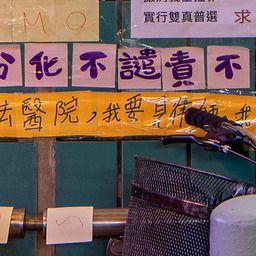 M O
實行雙真普選 求
分化不譴責不
去醫院，我要見律師,我